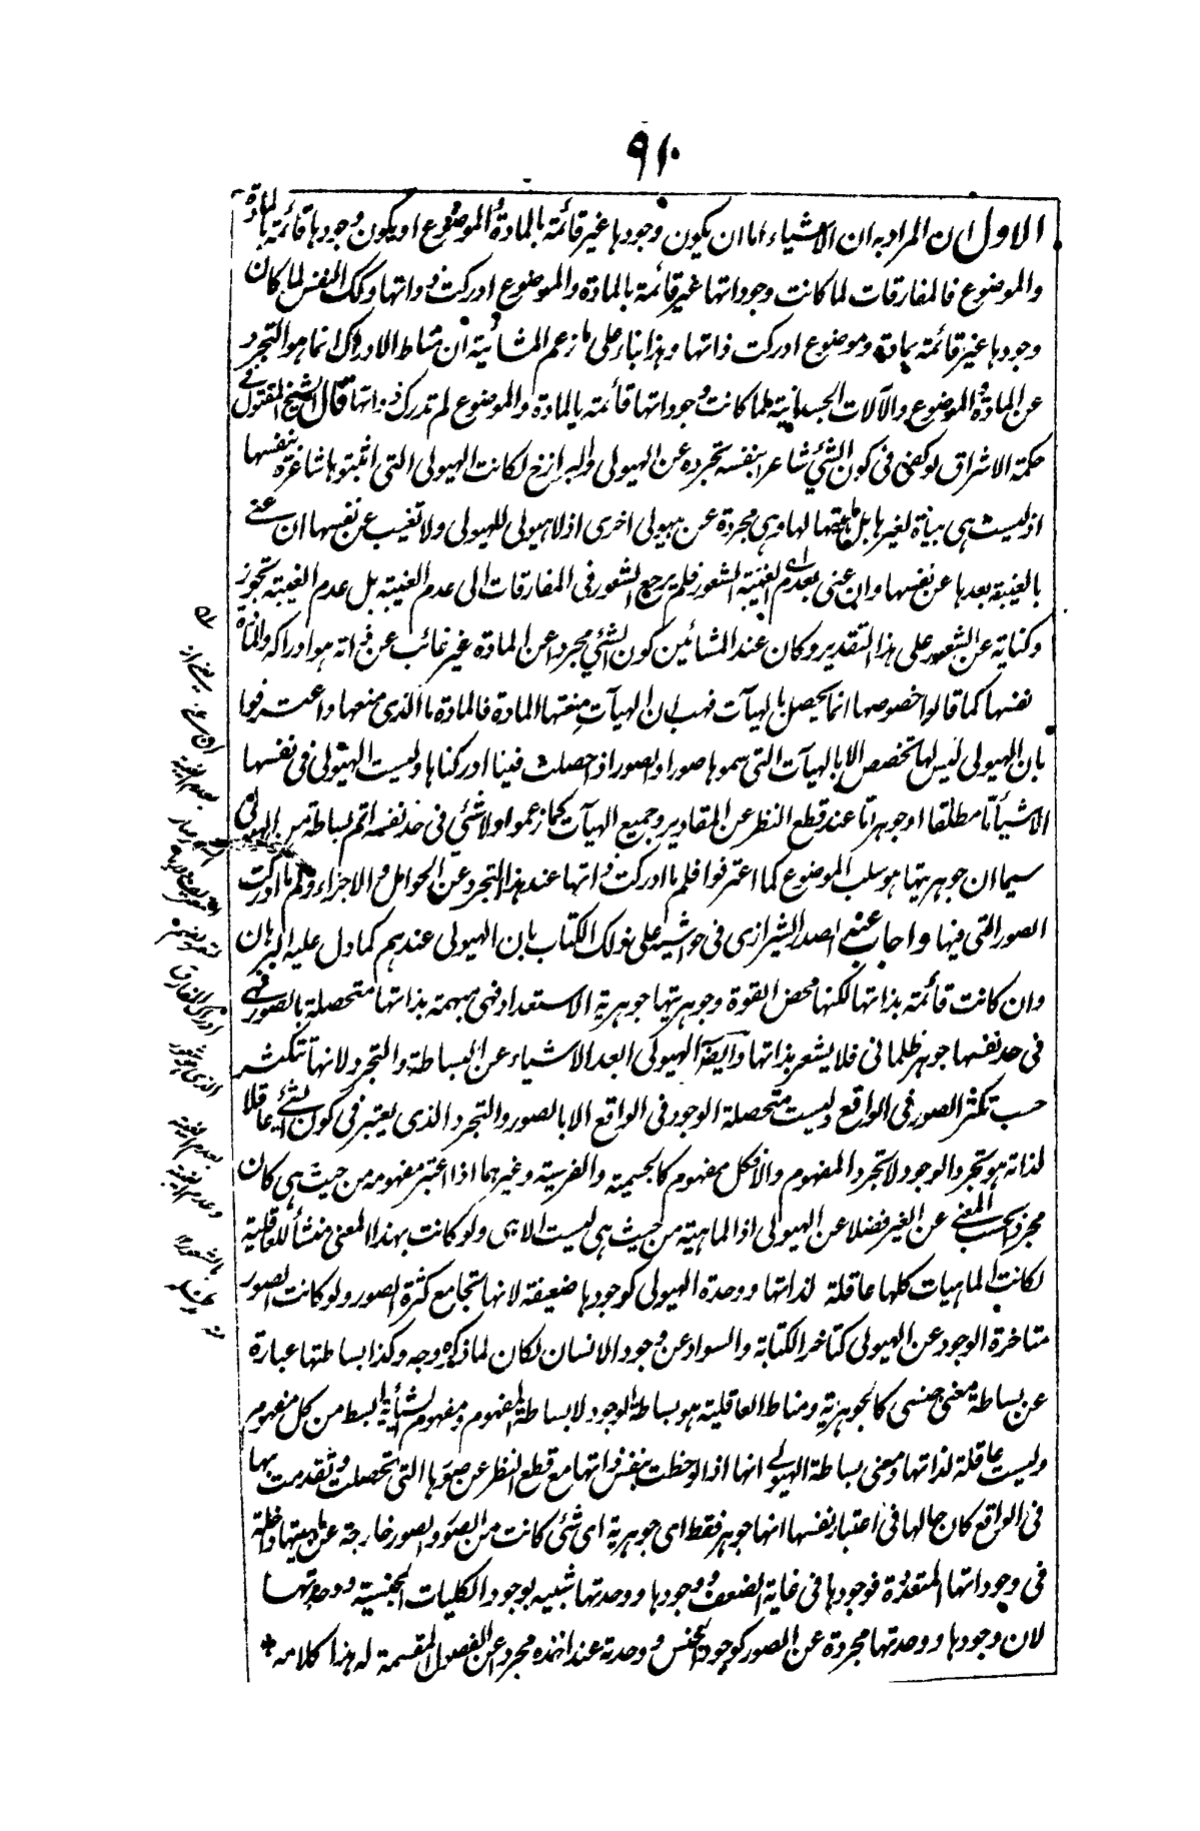 ٩١٠
الاول ان المراد به ان الاشياء اما ان يكون وجودها غير قائمة بالمادة والموضوع او يكون وجودها قائمة بالمادة
والموضوع فالمفارقات لما كانت وجوداتها غير قائمة بالمادة والموضوع ادركت ذواتها وكك النفس لما كان
وجودها غير قائمة بمادة وموضوع ادركت ذاتها وهذا بناء على ما زعم المشائية ان مناط الادراك انما هو التجرد
عن المادة والموضوع والآلات الجسمانية لما كانت وجوداتها قائمة بالمادة والموضوع لم تدرك ذواتها قال الشيخ المقتول في
حكمة الاشراق لو كفى في كون الشئ شاعرا بنفسه تجرده عن الهيولى والبرازخ لكانت الهيولى التي اثبتوها شاعرة بنفسها
اذ ليست هي هيأة لغيرها بل ماهيتها لها وهي مجردة عن هيولى اخرى اذ لا هيولى للهيولى ولا تغيب عن نفسها ان عنى
بالغيبة بعدها عن نفسها وان عنى بعدم الغيبة الشعور فلم يرجع الشعور في المفارقات الى عدم الغيبة بل عدم الغيبة تجوز
وكناية عن الشعور على هذا التقدير وكان عند المشائين كون الشئ مجردا عن المادة غير غائب عن ذاته هو ادراكه والمادة
نفسها كما قالوا خصوصها انما يحصل بالهيآت فهب ان الهيآت منعتها المادة فالمادة ما الذى منعها واعترفوا
بان الهيولى ليس لها تخصص الا بالهيآت التى سموها صورا والصور اذا حصلت فينا ادركناها وليست الهيولى في نفسها
الا شيأ ما مطلقا او جوهرا ما عند قطع النظر عن المقادير وجميع الهيآت كما زعموا ولا شئ في حد نفسه اتم بساطة من الهيولى
سيما ان جوهريتها هو سلب الموضوع كما اعترفوا فلم ما ادركت ذاتها عند هذا التجرد عن الحوامل والاجزاء ولم ما ادركت
الصور التى فيها واجاب عنه الصدر الشيرازى في حواشيه على ذلك الكتاب بان الهيولى عندهم كما دل عليه البرهان
وان كانت قائمة بذاتها لكنها محض القوة وجوهريتها جوهرية الاستعداد فهى مبهمة بذاتها متحصلة بالصور فهى
في حد نفسها جوهر ظلمانى فلا يشعر بذاتها وايضا الهيولى ابعد الاشياء عن البساطة والتجرد لانها تتكثر
حسب تكثر الصور في الواقع وليست متحصلة الوجود في الواقع الا بالصور والتجرد الذى يعتبر في كون الشئ عاقلا
لذاته هو تجرد الوجود لا تجرد المفهوم والا فكل مفهوم كالجسمية والفرسية وغيرهما اذا اعتبر مفهومه من حيث هى كان
مجردا بحسب المعنى عن الغير فضلا عن الهيولى اذ الماهية من حيث هى ليست الا هى ولو كانت بهذا المعنى منشأ للعاقلية
لكانت الماهيات كلها عاقلة لذاتها ووحدة الهيولى كوجودها ضعيفة لانها تجامع كثرة الصور ولو كانت الصور
متاخرة الوجود عن الهيولى كتاخر الكتابة والسواد عن وجود الانسان لكان لما ذكره وجه وكذا بساطتها عبارة
عن بساطة معنى جنسى كالجوهرية ومناط العاقلية هو بساطة الوجود لا بساطة المفهوم ومفهوم الشيأية ابسط من كل مفهوم
وليست عاقلة لذاتها ومعنى بساطة الهيولى انها اذا لوحظت بنفس ذاتها مع قطع النظر عن صورها التى تحصلت وتقدمت بها
في الواقع كان حالها في اعتبار نفسها انها جوهر فقط اى جوهرية اى شئ كانت من الصور والصور خارجة عن ماهيتها داخلة
في وجوداتها المتعددة فوجودها في غاية الضعف ووجودها ووحدتها شبيه بوجود الكليات الجنسية ووحدتها
لان وجودها ووحدتها مجردة عن الصور كوجود الجنس ووحدته عند اخذه مجردا عن الفصول المقسمة له هذا كلامه *